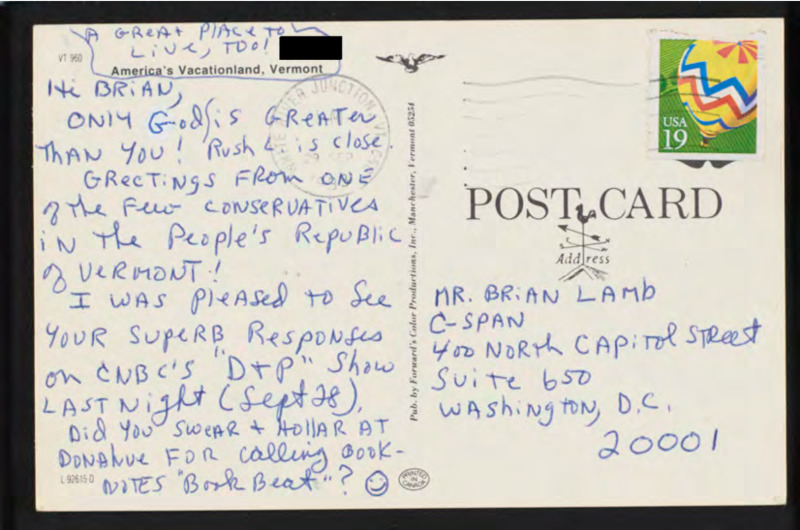 A GREAT PLACE TO
LIVE, TOO!
VT 960
America's Vacationland, Vermont
Hi BRIAN,
ONLY God is GREATER
THAN YOU! Rush L is close.
GREETINGS FROM ONE
of the Few CONSERVATIVES
iN the People's Republic
of VERMONT!
I WAS PLEASED to See
YOUR SUPERB Responses
on CNBC'S "D+P" Show
LAST Night (Sept 28).
Did You SWEAR + HOLLAR AT
DONAHUE FOR calling BOOK-
NOTES "Book Beat"? ☺
L 92615 D
PRINTED IN CANADA
Pub. by Forward's Color Productions, Inc., Manchester, Vermont 05254
RIVER JUNCTION
USA
19
POST CARD
Address
MR. BRIAN LAMB
C-SPAN
400 NORTH CAPITOL STREET
SUITE 650
WASHINGTON, D.C.
20001